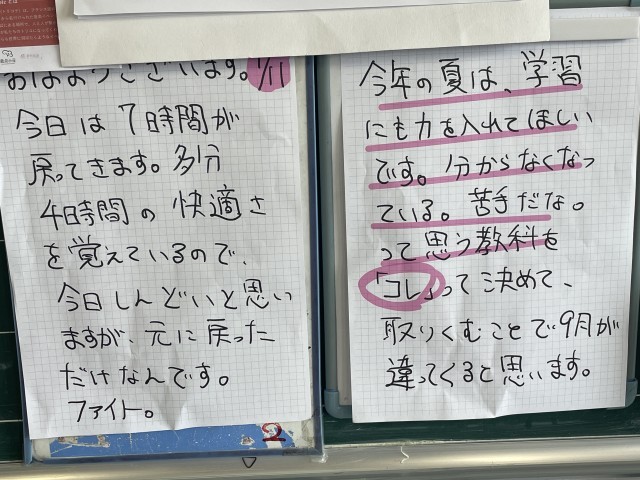 おはようございます。7/11
今日は7時間が
戻ってきます。多分
4日時間の快適さ
を覚えているので、
今日しんどいと思い
ますが、元に戻った
だけなんです。
ファイト。
2
今年の夏は、学習
にも力を入れてほしい
です。分からなくなっ
ている。苦手だな。
って思う教科を
「コレ」って決めて、
取りくむことで9月が
違ってくると思います。